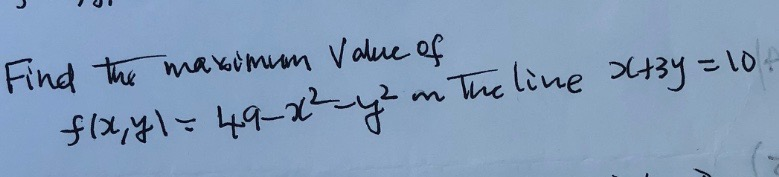 Find the maximum Value of
f(x,y) = 49-x²-y² on The line x+3y=10